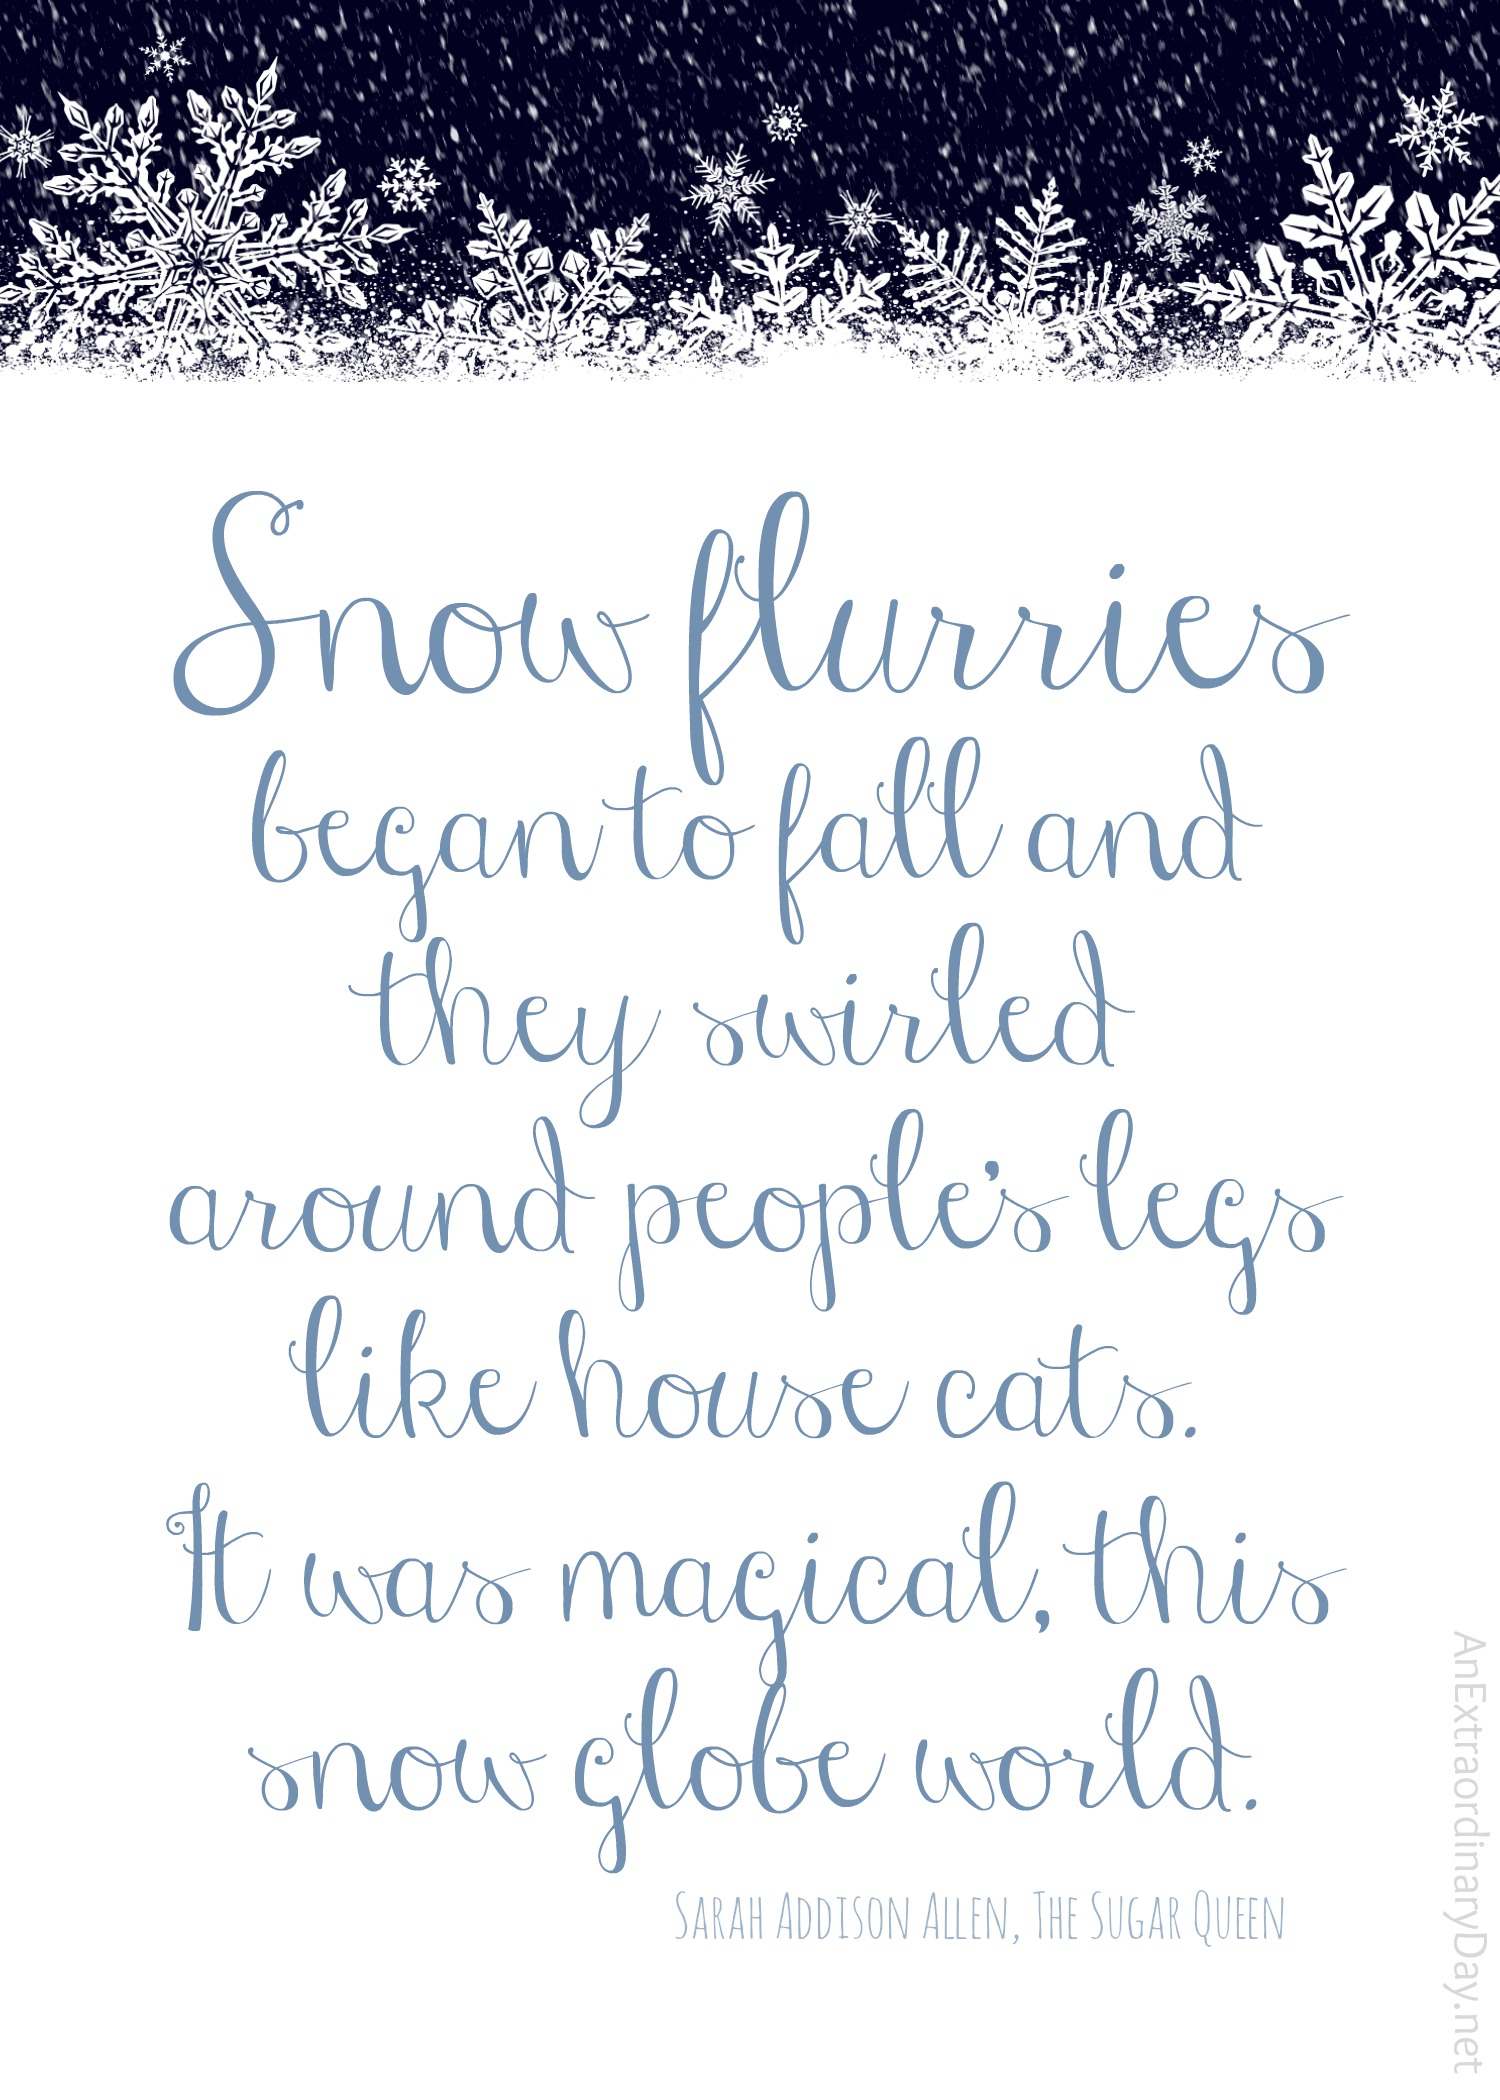 Snow flurries
began to fall and
they swirled
around people's legs
like house cats.
It was magical, this
snow globe world.
Sarah Addison Allen, The Sugar Queen
AnExtraordinaryDay.net